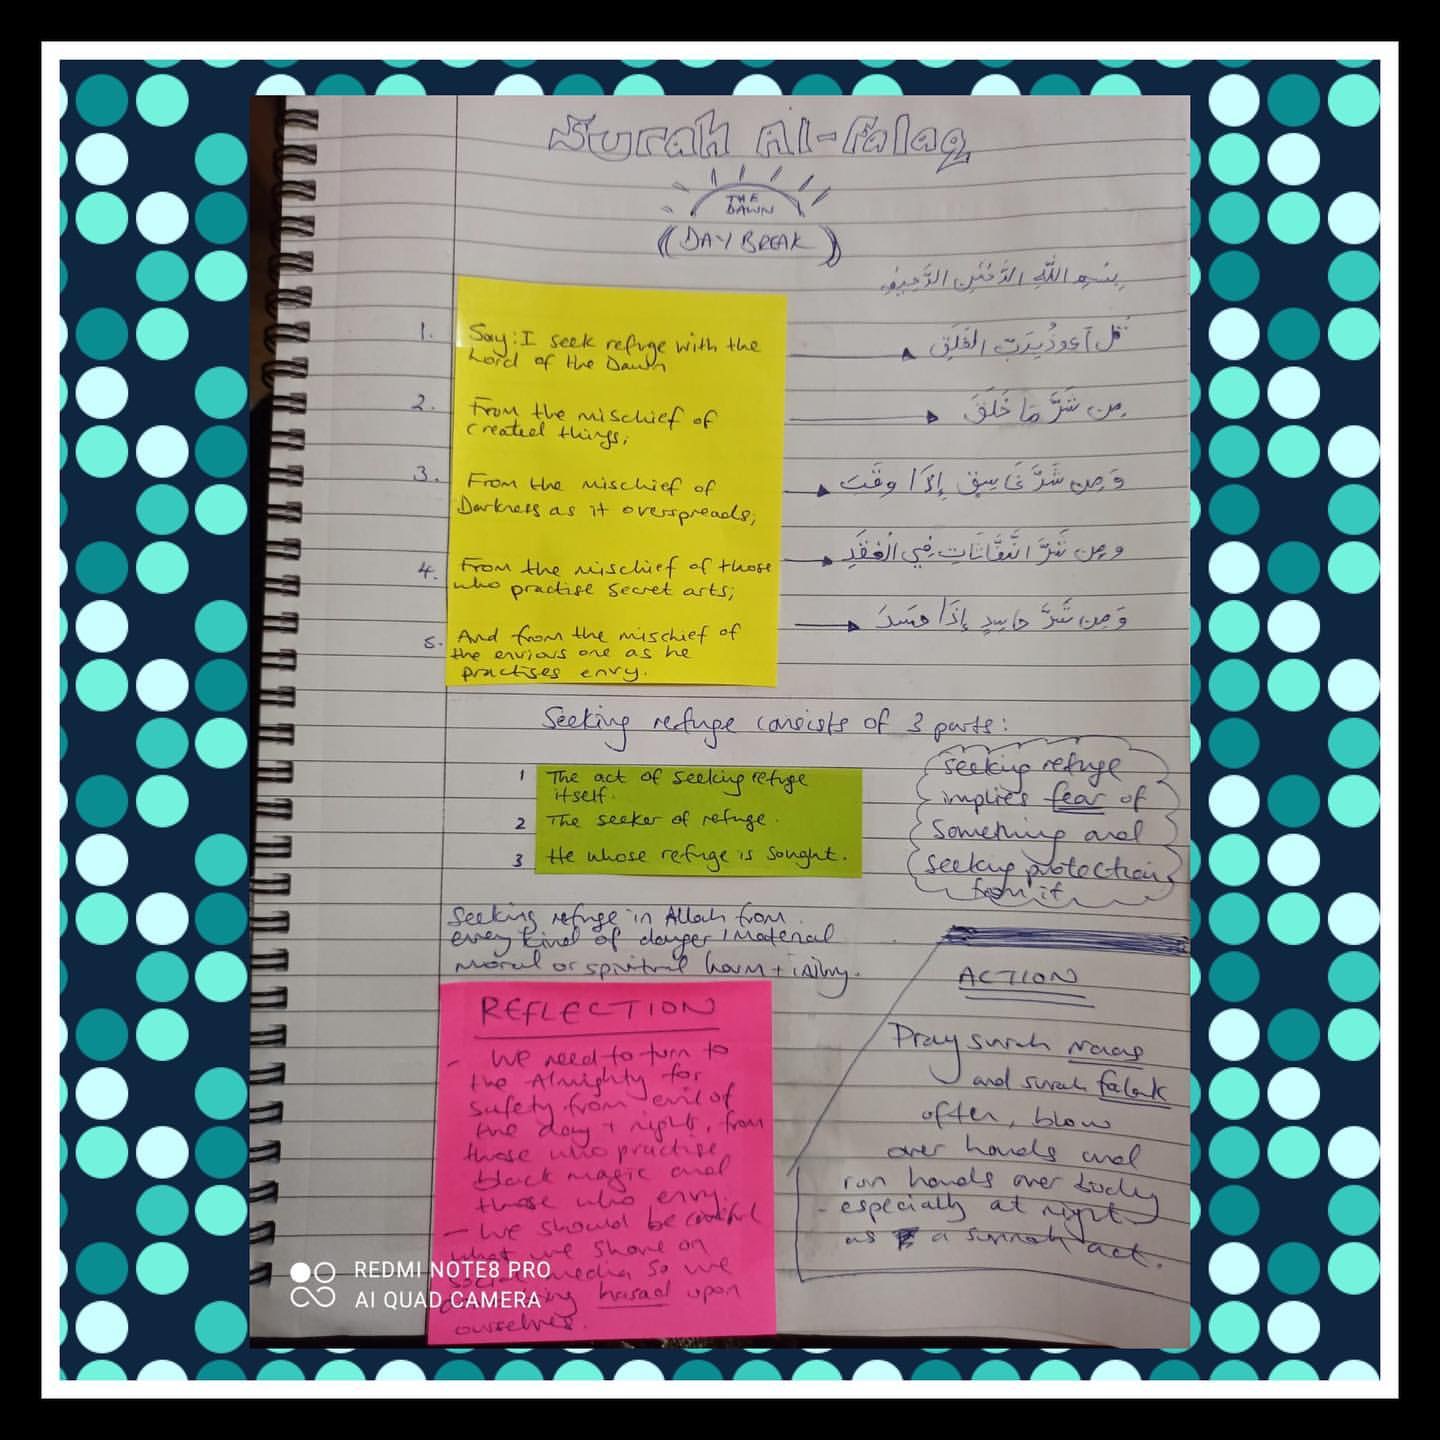 Surah Al-Falaq
THE
DAWN
(DAY BREAK)
بِسْمِ اللَّهِ الرَّحْمَنِ الرَّحِيمِ
1.
Say: I seek refuge with the
Lord of the Dawn
قُل أَعُوذُ بِرَبِّ الفَلَقِ
2.
From the mischief of
created things;
مِن شَرَّ مَا خَلَقَ
3.
From the mischief of
Darkness as it overspreads;
وَمِن شَرَّ غَاسِقٍ إِذَا وقَبَ
4.
From the mischief of those
who practise secret arts;
ومِن شَرَّ النَّفَّاثَاتِ فِي الْعُقَدِ
5.
And from the mischief of
the envious one as he
practises envy.
وَمِن شَرَّ حاسِدٍ إِذَا حَسَدَ
Seeking refuge consists of 3 parts:
1 The act of seeking refuge
itself.
2 The seeker of refuge.
3 He whose refuge is sought.
seeking refuge
implies fear of
something and
seeking protection
from it
Seeking refuge in Allah from
every kind of danger / material
moral or spiritual harm +
REFLECTION
- We need to turn to
the Almighty for
safety from evil of
the day + night, from
those who practise
black magic and
those who envy.
- We should be careful
what we share on
social media so we
hasad upon
ourselves.
ACTION
Pray surah Naas
and surah falak
often, blow
over hands and
run hands over body
- especially at night
as a sunnah act.
REDMI NOTE8 PRO
AI QUAD CAMERA